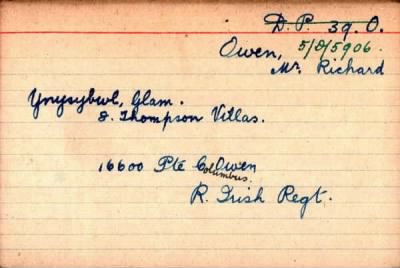 D. P. 39. O.
Owen, 5/D/5906.
Mr. Richard
Ynysybwl, Glam.
8. Thompson Villas.
16600 Pte C Owen
Columbus.
R. Irish Regt.